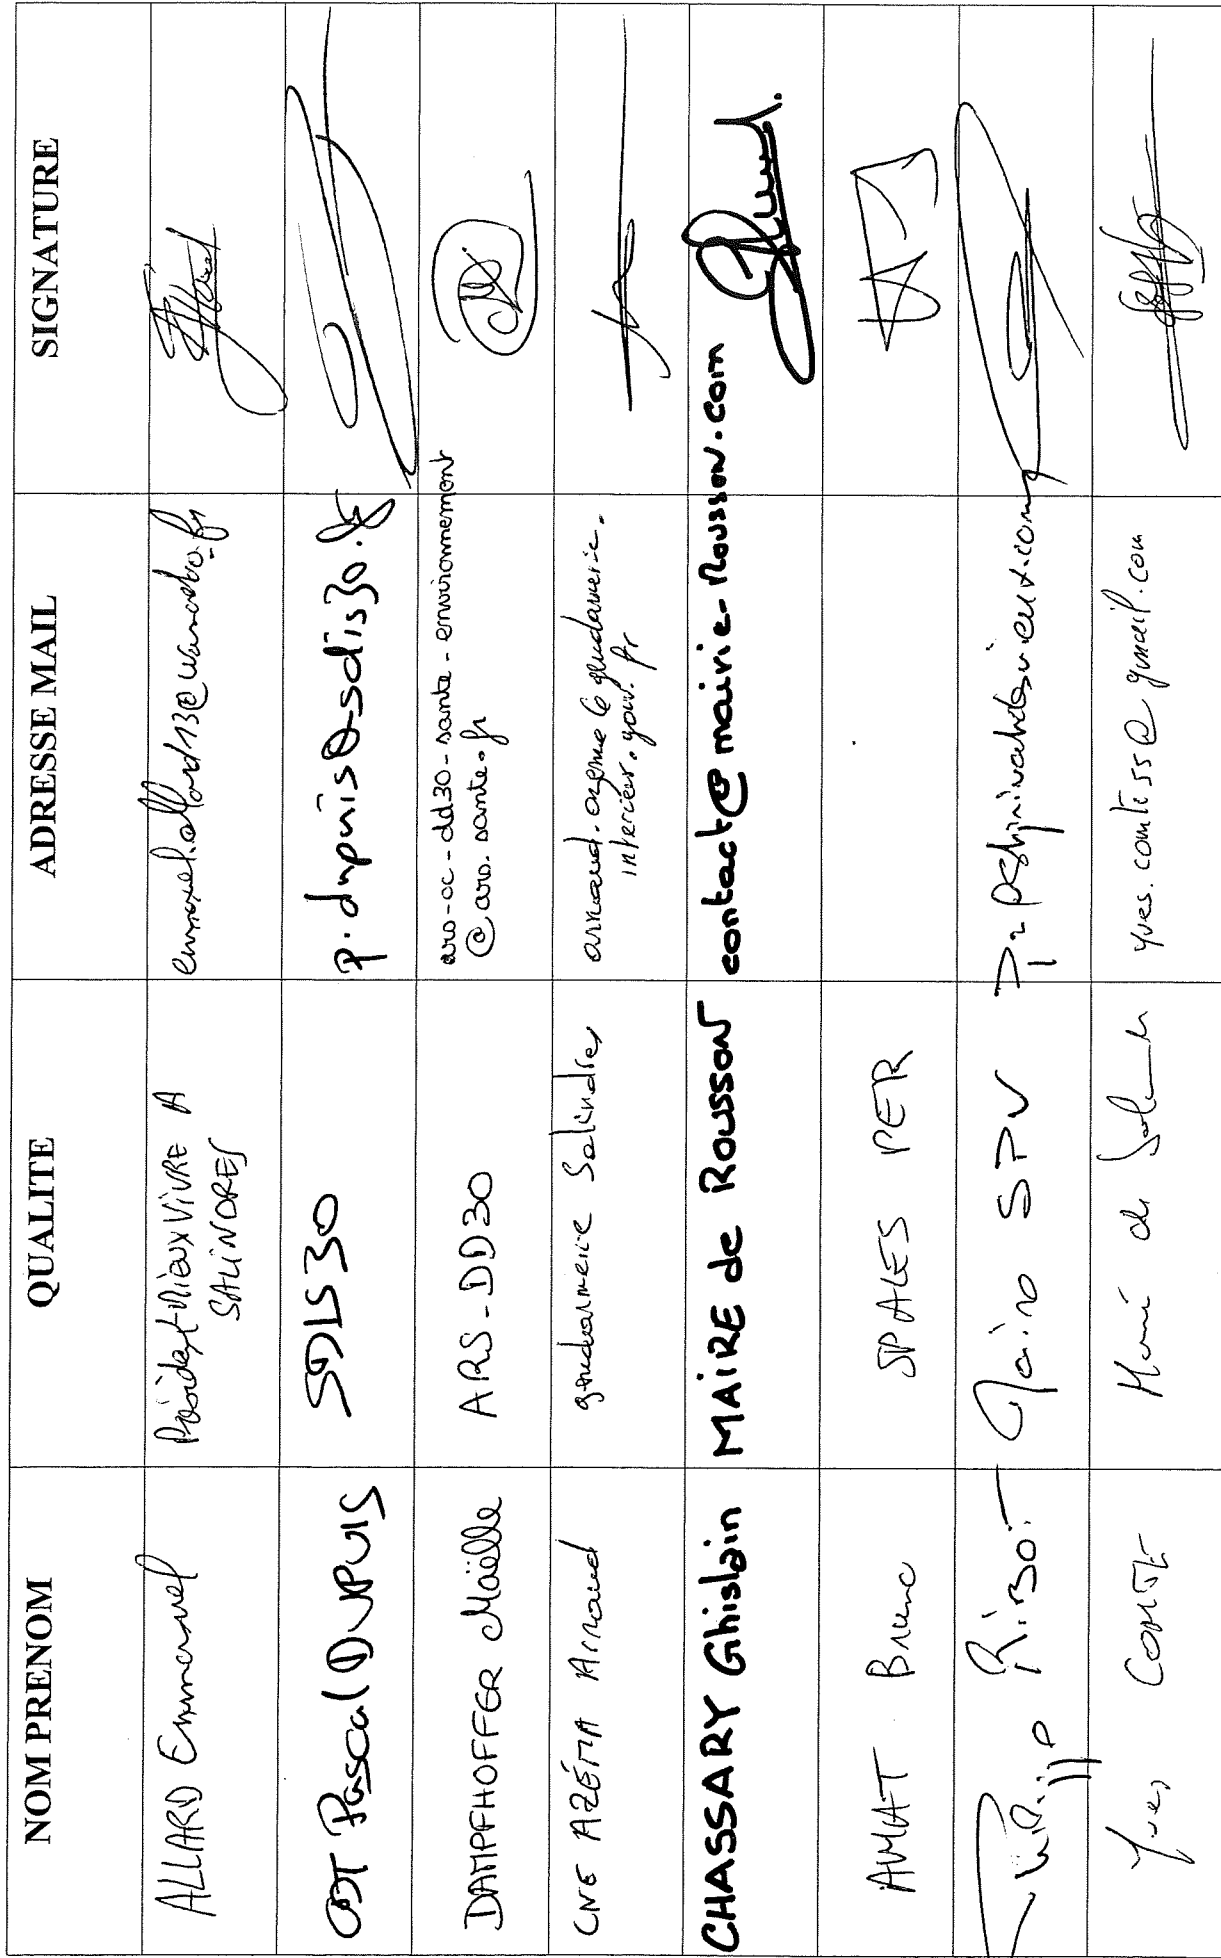 NOM PRENOM QUALITE ADRESSE MAIL SIGNATURE
ALLARD Emmanuel
Président Mieux VIVRE A
SALINDRES
emmanuel.allard13@wanadoo.fr
CDT Pascal DUPUIS
SDIS30
p.dupuis@sdis30.fr
DAMPFHOFFER Maëlle
ARS-DD30
ars-oc-dd30-sante-environnement
@ars.sante.fr
CNE AZÉMA Arnaud
gendarmerie Salindres
arnaud.azema@gendarmerie.
interieur.gouv.fr
CHASSARY Ghislain
MAIRE de ROUSSON
contact@mairie-rousson.com
AMAT Bruno
SPALES PER
Philippe RIBOT
Maire SPV
Yves COMTE
yves.comte55@gmail.com